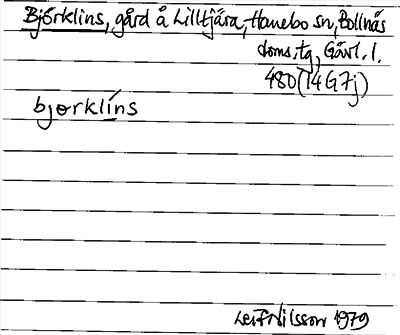 Björklins, gård å Lilltjära, Hanebo sn, Bollnäs
doms.tg, Gävl. l.
480 (14G7j)
bjørklíns
Leif Nilsson 1979